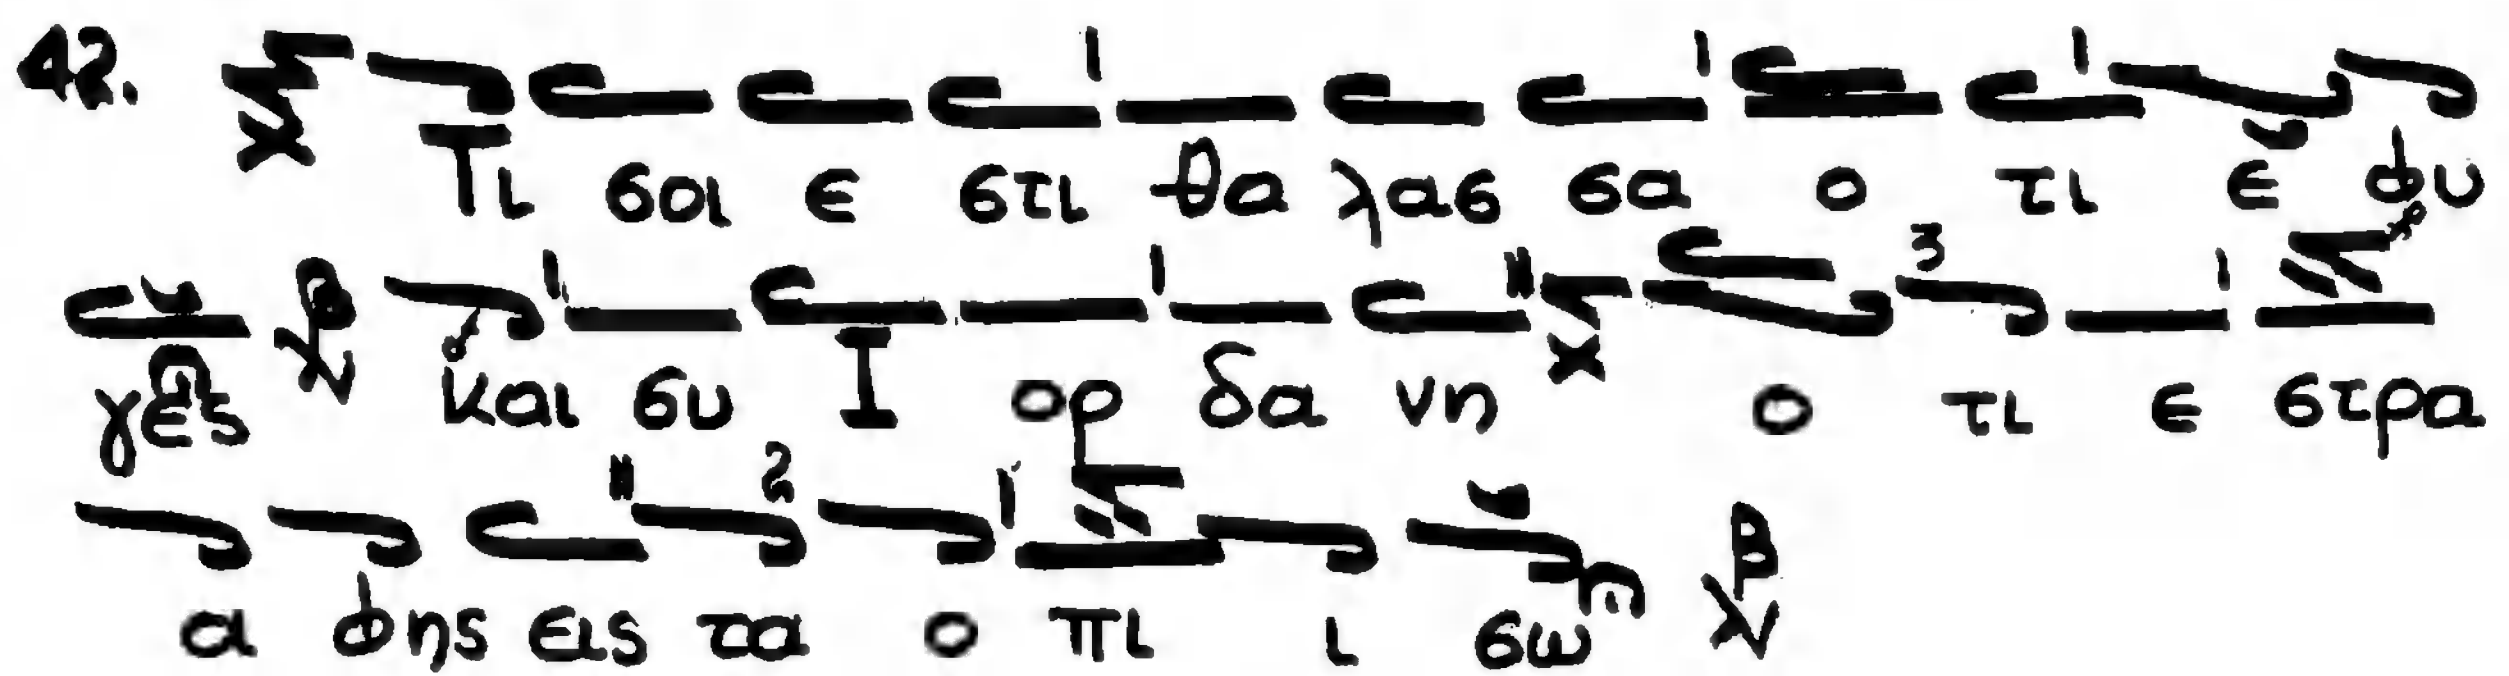 42. Τι σοι ε στι θα λασ σα ο τι ε φυ
γες και συ Ι ορ δα νη ο τι ε στρα
α φης εις τα ο πι ι σω